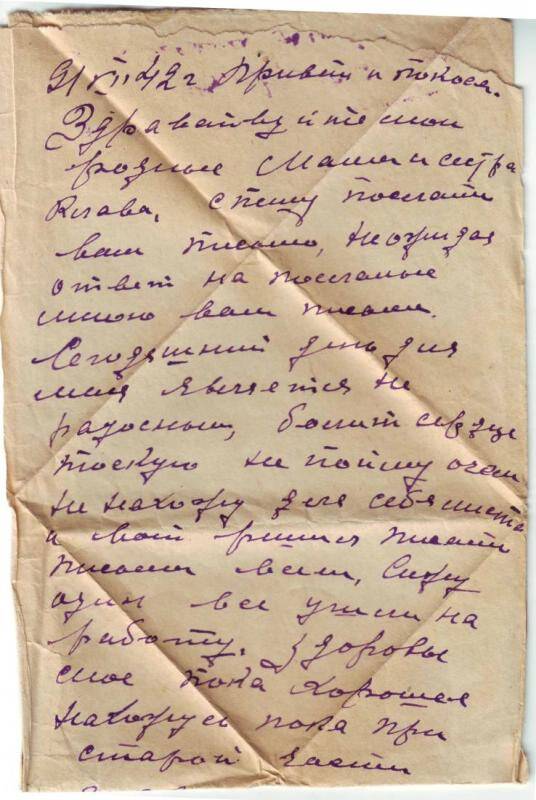 42 г Привет и
Здравствуйте мои
родные Мама и сестра
Клава, спешу послать
вам письмо, не ожидая
ответ на посланые
мною вам письма.
Сегодяшний день для
мня является не
радосным, болит сердце
тоскую не пойму о чем
не нахожу для себя места
и вот решил писать
письмо вам, Сижу
один все ушли на
работу. Здоровье
мое пока хорошее
нахожусь пока при
старой части